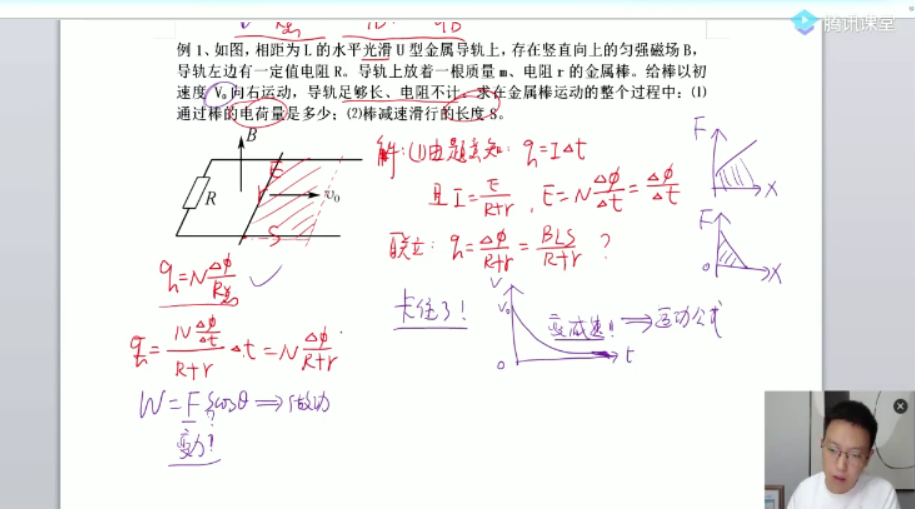 腾讯课堂
例 1、如图，相距为 L 的水平光滑 U 型金属导轨上，存在竖直向上的匀强磁场 B，
导轨左边有一定值电阻 R。导轨上放着一根质量 m、电阻 r 的金属棒。给棒以初
速度 V₀ 向右运动，导轨足够长、电阻不计。求在金属棒运动的整个过程中：⑴
通过棒的电荷量是多少；⑵棒减速滑行的长度 S。
B
R
E
r
v₀
S
解：(1)由题意知：q=IΔt
且 I=E/(R+r)，E=N ΔΦ/Δt=ΔΦ/Δt
联立：q=ΔΦ/(R+r)=BLS/(R+r) ？
F
X
F
0
X
q=N ΔΦ/R总 ✓
卡住了！
V
V₀
0
t
变减速!! ⟹ 运动公式
q=(N ΔΦ/Δt)/(R+r)·Δt=N ΔΦ/(R+r)
W=F S cosθ ⟹ 做功
?
变力？